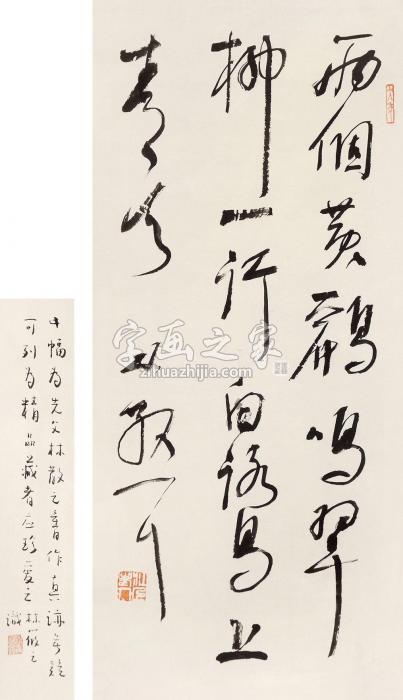 兩個黄鸝鳴翠
柳一行白鷺上
青天 散耳
此幅为先父林散之書作真跡无疑
可列为精品藏者应珍爱之 林筱之
識
字画之家
zihuazhijia.com